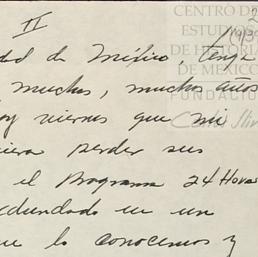 II
CENTRO DE
ESTUDIOS
DE HISTORIA
DE MÉXICO
FUNDACIÓN
dad de México, tenga
muchos, muchos años
oy viernes que mi
iera perder sus
el Programa 24 Horas
edundado en un
ue lo conocemos y